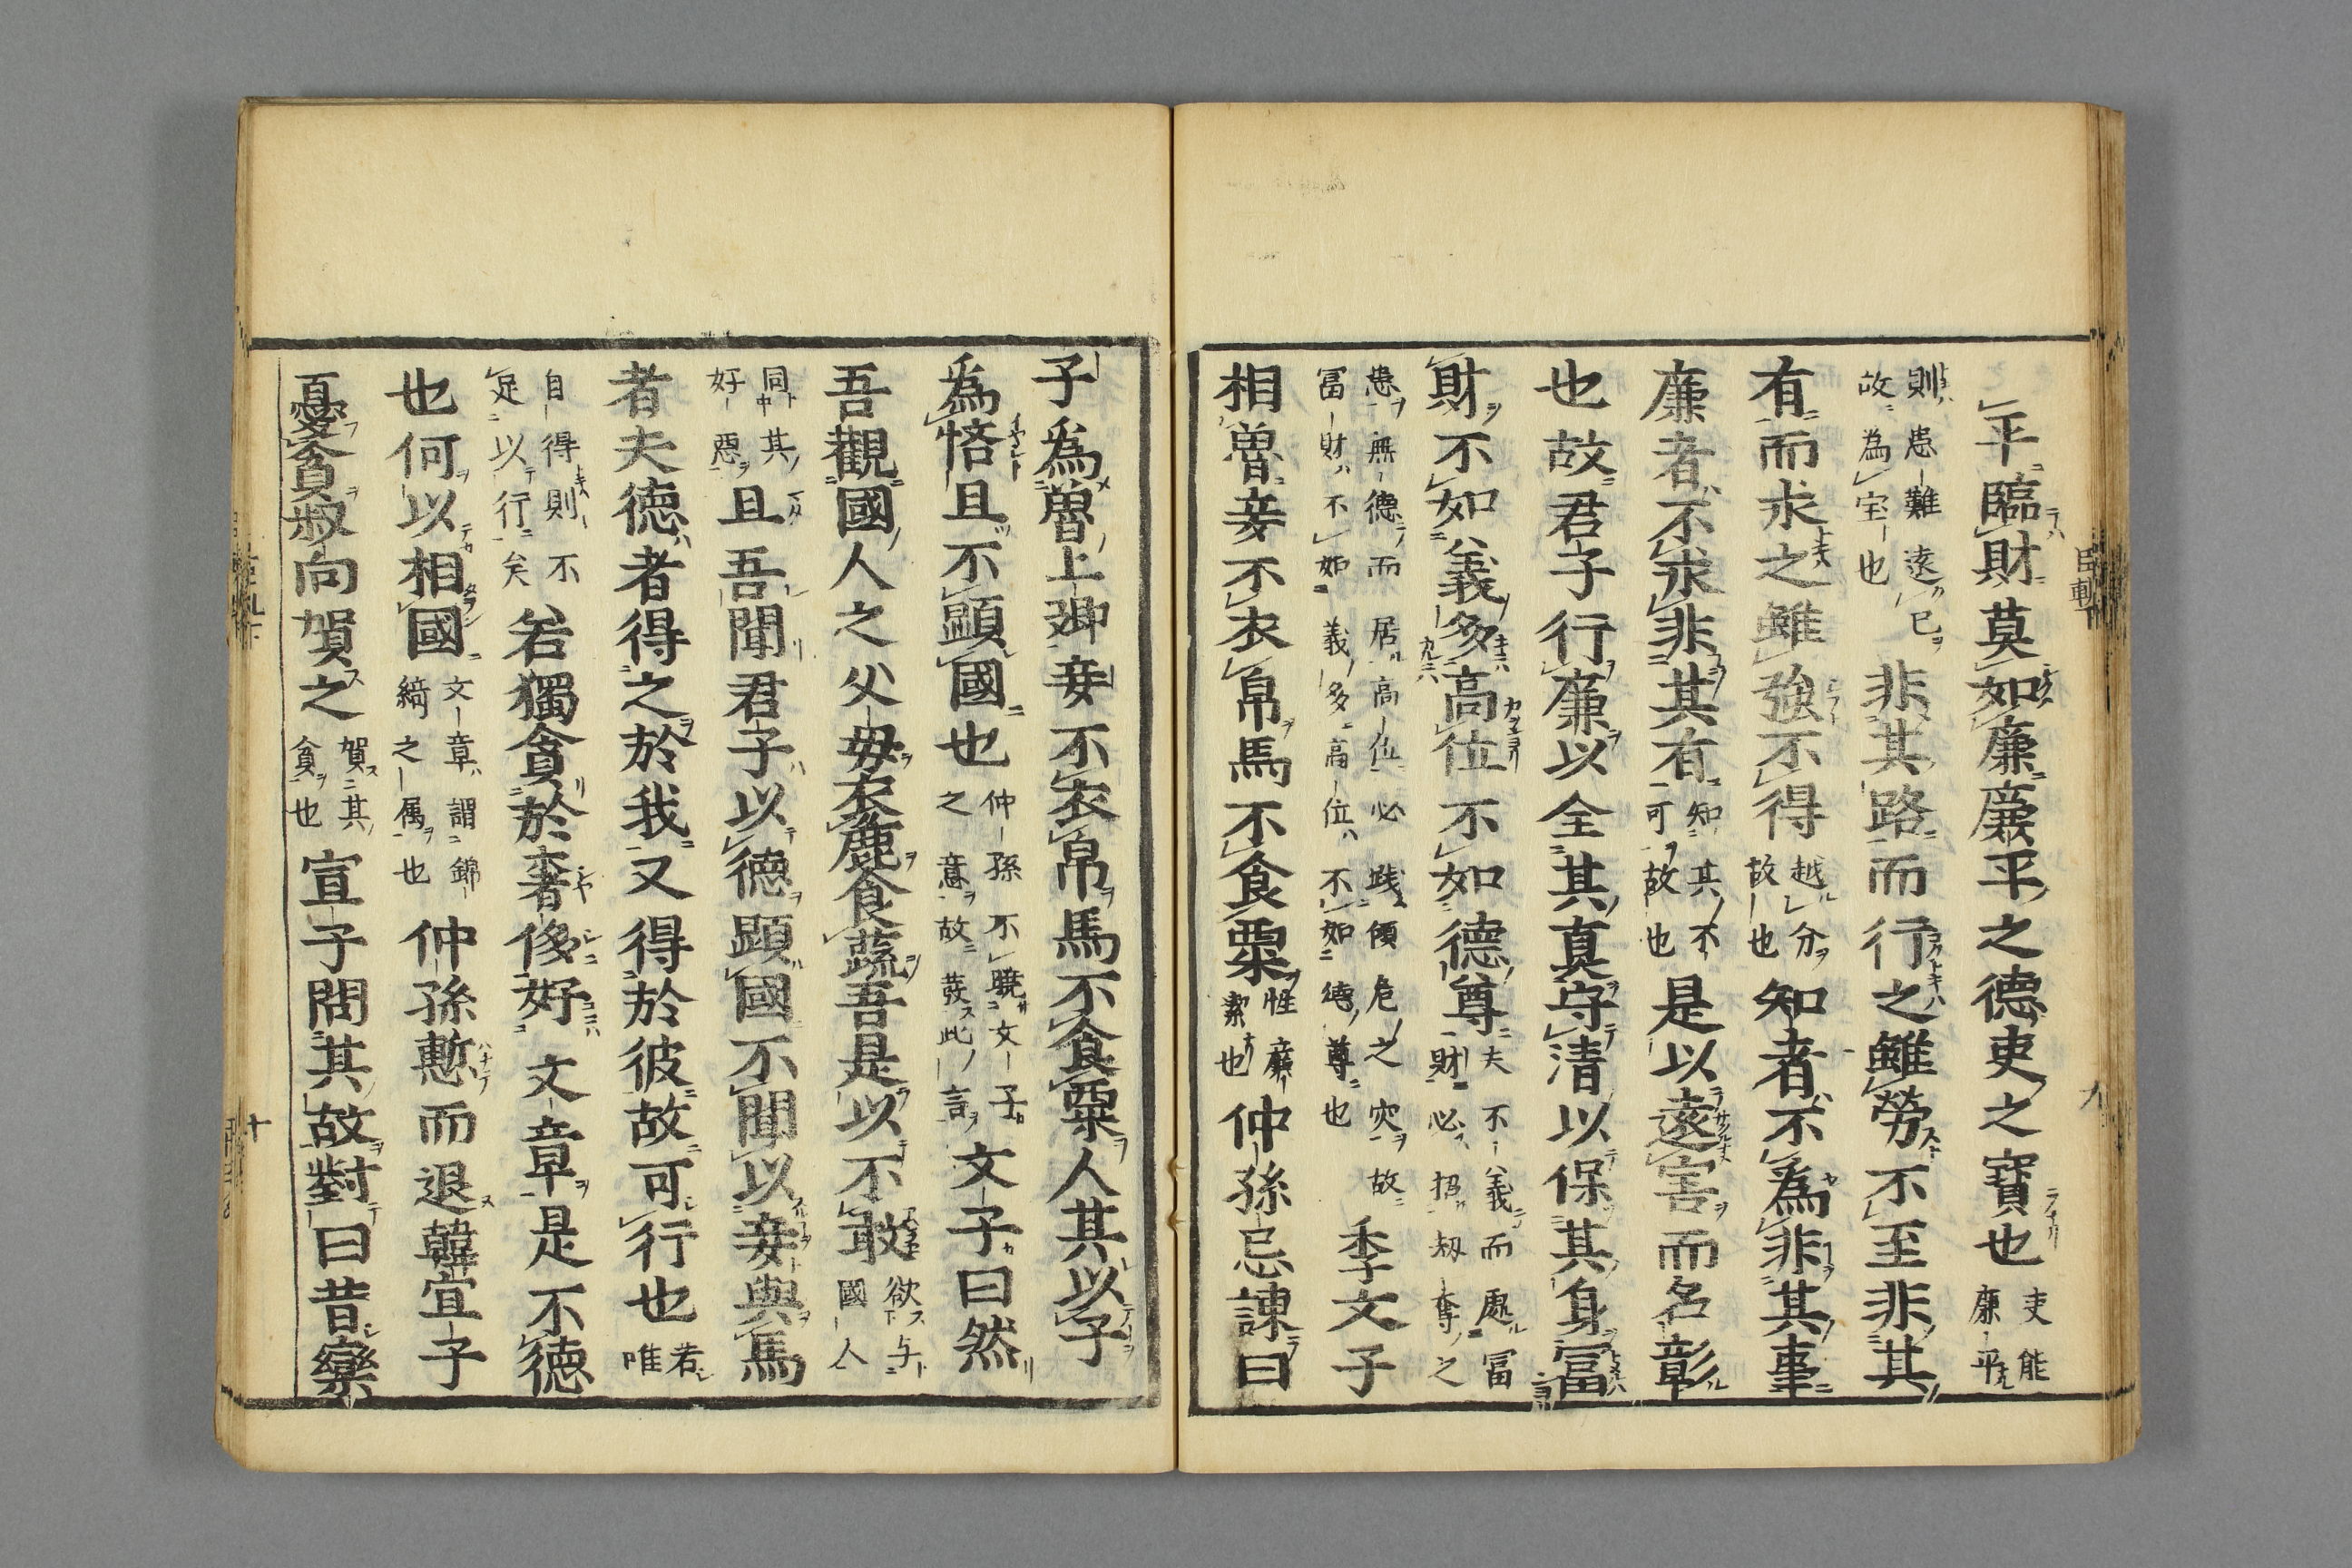 平臨財莫如廉廉平之德吏之寶也吏能廉平
則患難遠已故為宝也非其路而行之雖勞不至非其
有而求之雖強不得越分故也知者不為非其事
廉者不求非其有知其不可故也是以遠害而名彰
也故君子行廉以全其真守清以保其身冨
財不如義多高位不如德尊夫不義而處冨財必招刼奪之
患無德而居高位必践傾危之灾故冨財不如義多高位不如德尊也季文子
相魯妾不衣帛馬不食粟性廉潔也仲孫忌諫曰
子為魯上卿妾不衣帛馬不食粟人其以子
為悋且不顯國也仲孫不曉文子之意故發此言文子曰然
吾觀國人之父母衣麁食蔬吾是以不敢欲与國人
同其好惡且吾聞君子以德顯國不聞以妾與馬
者夫德者得之於我又得於彼故可行也若唯
自得則不足以行矣若獨貪於奢侈好文章是不德
也何以相國文章謂錦綺之属也仲孫慙而退韓宣子
憂貧叔向賀之賀其貪也宣子問其故對曰昔欒